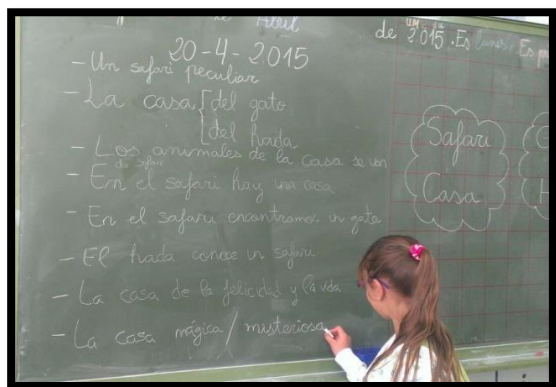 de Abril
de 2.015. Es lunes. Es
20-4-2.015
- Un safari peculiar
- La casa del gato
del hada
- Los animales de la casa se van
de safari
- En el safari hay una casa
- En el safari encontramos un gato
- El hada conoce un safari
- La casa de la felicidad y la vida
- La casa mágica / misteriosa
Safari
Casa